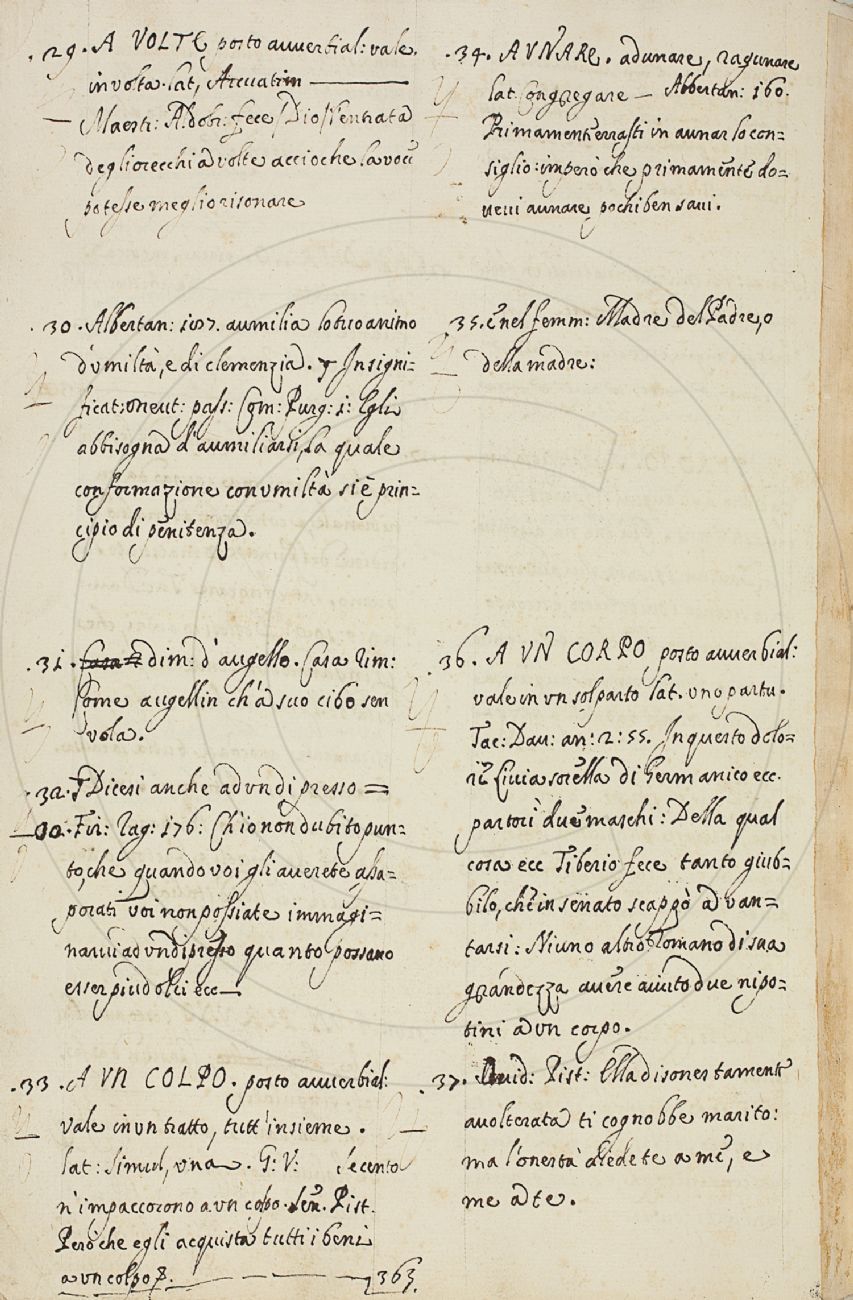 .29. A VOLTE posto auuerbial: vale
in volta. lat, Arcuatim
Maestr: Aldobr: fece Dio l'entrata
degli orecchi a volte accioche la voce
potesse meglio risonare
.30. Albertan: 107. aumilia lo tuo animo
d'umiltà, e di clemenzia. Insigni=
ficat: neut: pass: Com: Purg: 1: Egli
abbisogna d'aumiliarsi, la quale
conformazione con umiltà si è prin=
cipio di penitenza.
.31. dim: d'augello. Casa rim:
Come augellin ch'a suo cibo sen
vola.
.32. Dicesi anche ad un di presso =
Fir: rag: 176: Ch'io non dubito pun=
to, che quando voi gli auerete assa=
porati voi non possiate immagi=
narui ad un di presso quanto possano
esser piu dolci ecc
.33. A VN COLPO. posto auuerbial:
vale in un tratto, tutt'insieme.
lat: simul, una. G: V: Secento
n'impaccorono a un colpo. Sen. Pist.
Però che egli acquista tutti i beni
a un colpo 363.
.34. AVNARE. adunare, ragunare
lat. Congregare — Albertan: 160.
Primamente errasti in aunar lo con=
siglio: imperò che primamente do=
ueui aunare pochi ben saui.
35. e nel femm: Madre del Padre, o
della madre:
36. A VN CORPO posto auuerbial:
vale in un sol parto lat. uno partu.
Tac: Dau: an: 2: 55. In questo dolo=
re Liuia sorella di Germanico ecc.
partorì due maschi: Della qual
cosa ecc Tiberio fece tanto giub=
bilo, che in senato scappò a van=
tarsi: Niuno altro Romano di sua
grandezza auere auuto due nipo=
tini a un corpo.
.37. Ouid: Pist: Ella disonestamente
auolterata ti cognobbe marito:
ma l'onestà diede te a me, e
me a te.